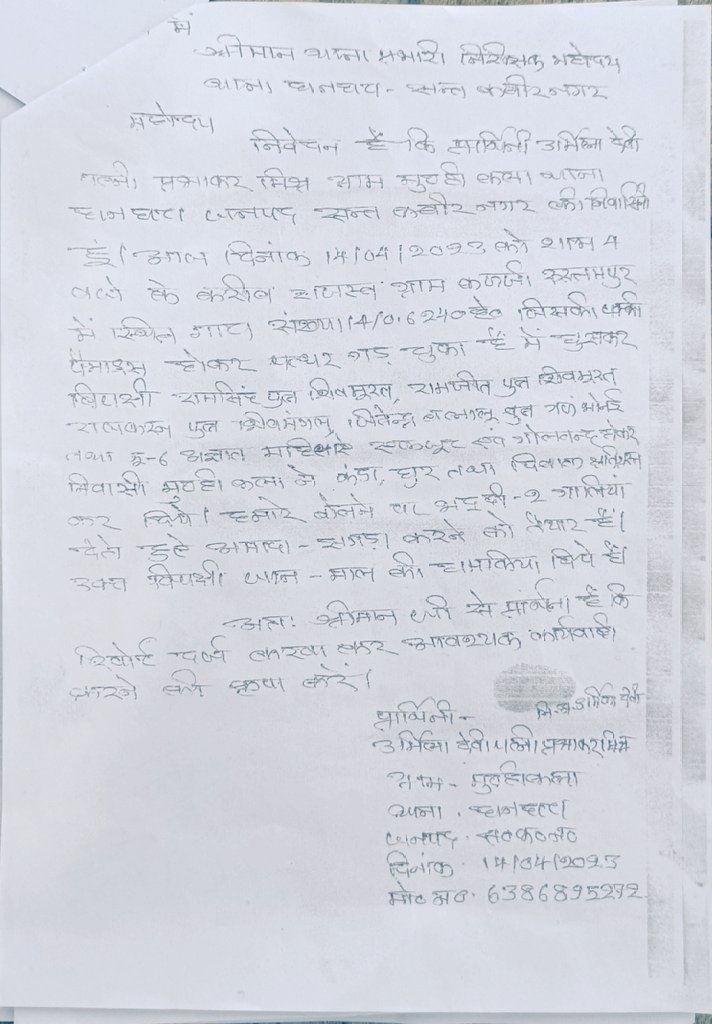 में
श्रीमान थाना प्रभारी निरीक्षक महोदय
थाना धनघटा - सन्त कबीर नगर
महोदय
निवेदन है कि प्रार्थिनी उर्मिला देवी
पत्नी प्रभाकर मिश्र ग्राम मुठही कला थाना
धनघटा जनपद सन्त कबीर नगर की निवासिनी
हूँ। आज दिनांक 14/04/2023 को शाम 4
बजे के करीब राजस्व ग्राम रुस्तमपुर
में स्थित गाटा संख्या 14/0.6240हे० जिसकी पक्की
पैमाइस होकर पत्थर गड़ चुका है में घुसकर
विपक्षी रामसिंह पुत्र शिवमूरत, रामजीत पुत्र शिवमूरत
पुत्र शिवमंगल, जितेन्द्र पुत्र गण
तथा 5-6 अज्ञात महिलायें एकजुट एवं गोलबन्द होकर
निवासी मुठही कला ने कंडा, घुर तथा दिवाल क्षतिग्रस्त
कर दिये। हमारे बोलने पर भद्दी-२ गालियां
देते हुये आमादा - झगड़ा करने को तैयार हैं।
उक्त विपक्षी जान - माल की धमकिया दिये हैं।
अतः श्रीमान जी से प्रार्थना है कि
रिपोर्ट दर्ज करवा कर आवश्यक कार्यवाही
करने की कृपा करें।
नि.अ.उर्मिला देवी
प्रार्थिनी -
उर्मिला देवी पत्नी प्रभाकर मिश्र
ग्राम - मुठहीकला
थाना . धनघटा
जनपद . स०क०न०
दिनांक . 14/04/2023
मो० न० . 6386895272